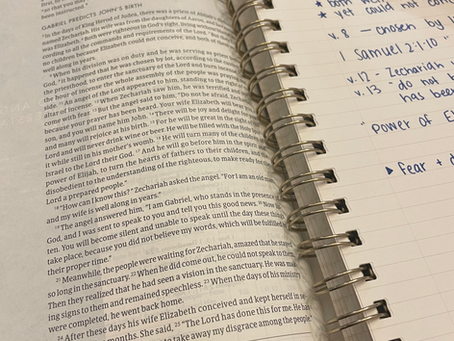 so that you may
been instructed.
GABRIEL PREDICTS JOHN'S BIRTH
In the days of King Herod of Judea, there was a priest of
named Zechariah. His wife was from the daughters of Aaron,
was Elizabeth. Both were righteous in God's sight, living
cording to all the commands and requirements of the Lord. But
no children because Elizabeth could not conceive, and both
well along in years.
When his division was on duty and he was serving as priest
God, it happened that he was chosen by lot, according to the
the priesthood, to enter the sanctuary of the Lord and burn
the hour of incense the whole assembly of the people was praying
side. An angel of the Lord appeared to him, standing to the right
altar of incense. When Zechariah saw him, he was terrified and
with fear. But the angel said to him, "Do not be afraid, Zechariah,
because your prayer has been heard. Your wife Elizabeth will
son, and you will name him John. There will be joy and delight
and many will rejoice at his birth. For he will be great in the sight
Lord and will never drink wine or beer. He will be filled with the Holy
it while still in his mother's womb. He will turn many of the children
Israel to the Lord their God. And he will go before him in the spirit
power of Elijah, to turn the hearts of fathers to their children, and
disobedient to the understanding of the righteous, to make ready for
Lord a prepared people."
"How can I know this?" Zechariah asked the angel. "For I am an old
and my wife is well along in years."
19 The angel answered him, "I am Gabriel, who stands in the presence
God, and I was sent to speak to you and tell you this good news. 20 Now
ten. You will become silent and unable to speak until the day these things
take place, because you did not believe my words, which will be fulfilled
their proper time."
21 Meanwhile, the people were waiting for Zechariah, amazed that he stayed
so long in the sanctuary. 22 When he did come out, he could not speak to them.
Then they realized that he had seen a vision in the sanctuary. He was
ing signs to them and remained speechless. 23 When the days of his ministry
were completed, he went back home.
24 After these days his wife Elizabeth conceived and kept herself in
months. She said, 25 "The Lord has done this for me. He has
to take away my disgrace among the people."
* both
* yet could not
v. 8 - chosen by
1 Samuel 2:1-10
v. 12 - Zechariah
v. 13 - do not
has been
"power of
▸ Fear +